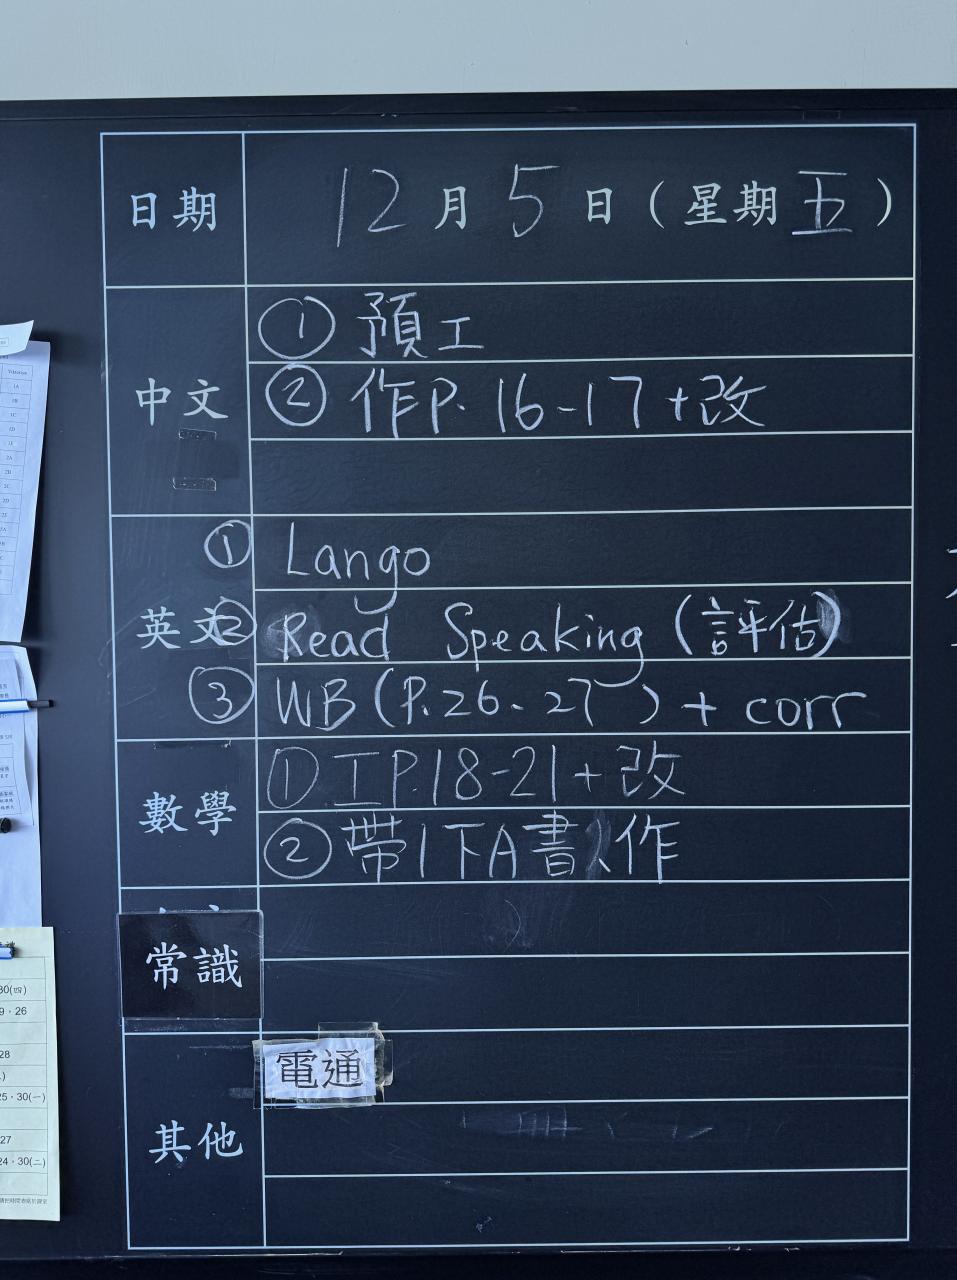 日期 12月5日（星期五）
中文
① 預工
② 作P. 16-17+改
英文
① Lango
② Read Speaking (評估)
③ WB (P.26、27) + corr
數學
① 工P.18-21+改
② 帶1下A書、作
常識
其他
電通
30(四)
9，26
28
25，30(一)
27
24，30(二)